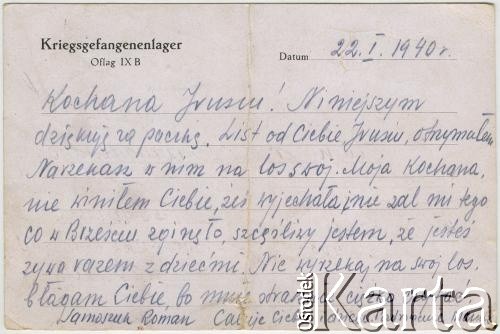 Kriegsgefangenenlager
Oflag IX B
Datum 22.I.1940r.
Kochana Irusiu! Niniejszym
dziękuję za paczkę. List od Ciebie Irusiu, otrzymałem
Narzekasz w nim na los swój. Moja Kochana,
nie winiłem Ciebie, żeś wyjechała, nie żal mi tego
co w Brześciu zginęło, szczęśliwy jestem, że jesteś
żywa razem z dziećmi. Nie wyrzekaj na swój los,
błagam Ciebie, bo mnie
Samoszuk Roman Całuję Ciebie
Ośrodek
Karta